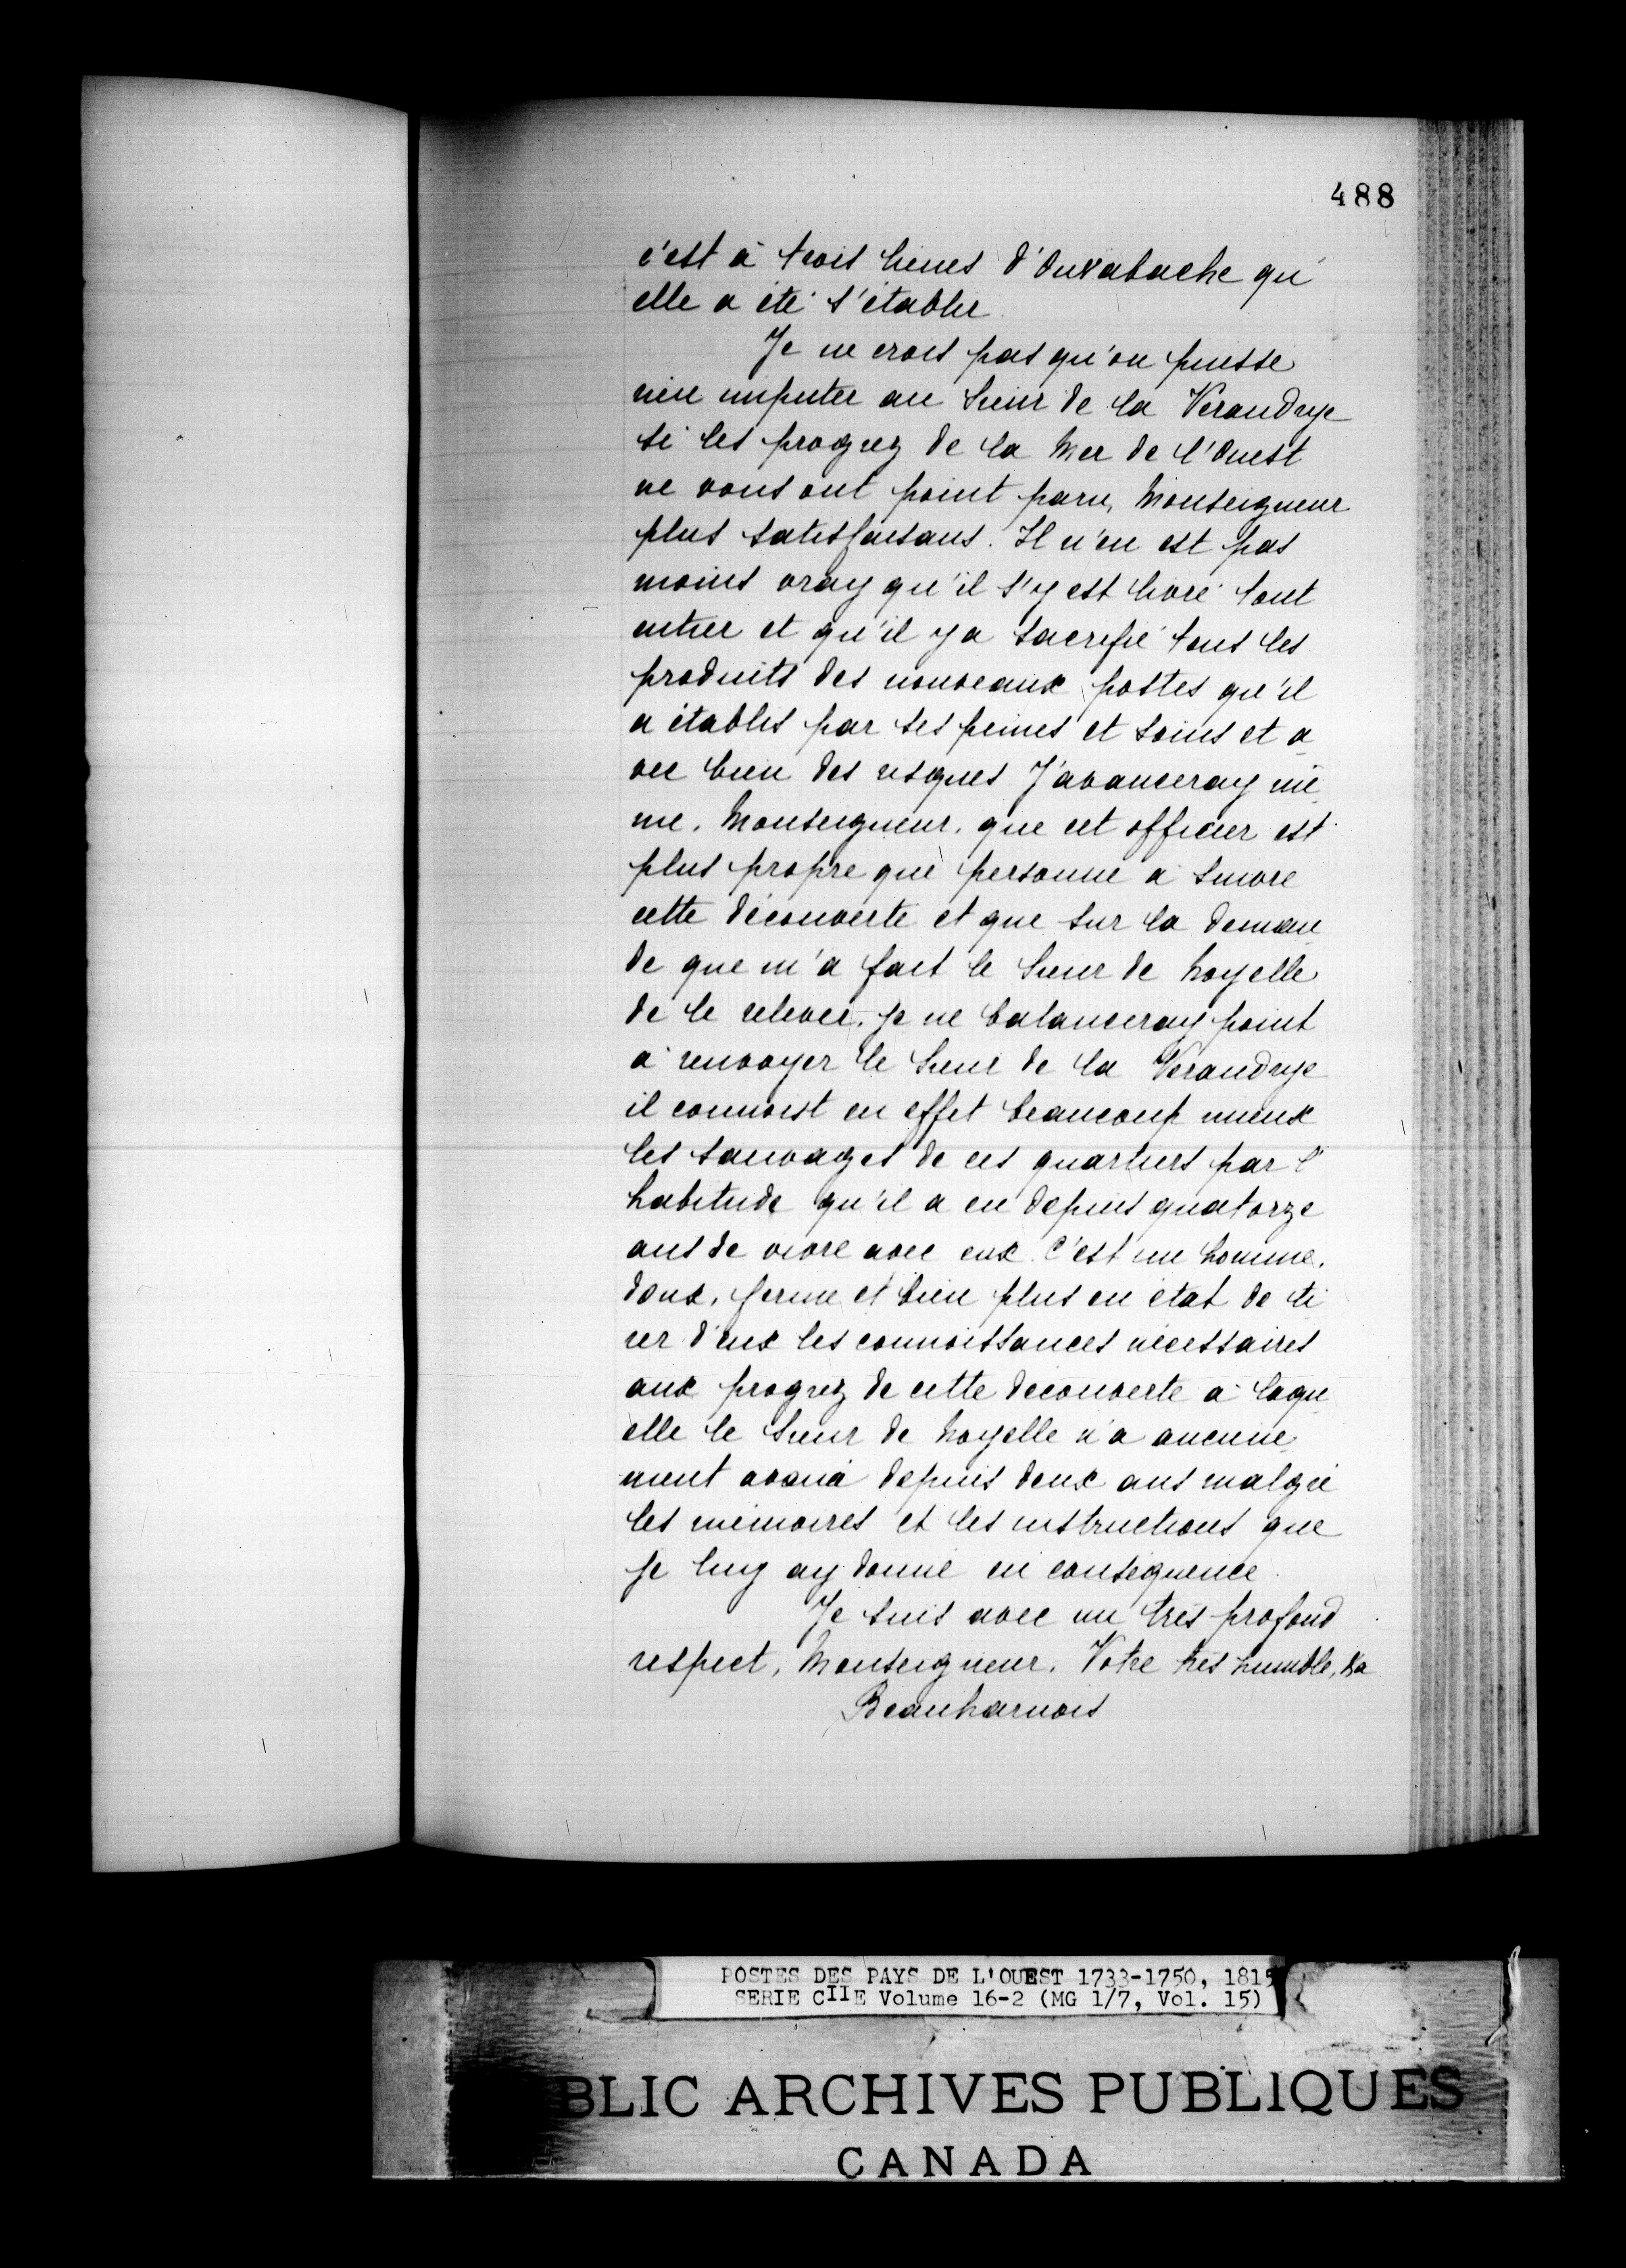 488
c'est à trois lieues d'Ouxabache qu'
elle a été s'établir.
Je ne crois pas qu'on puisse
rien imputer au Sieur de la Verandrye
si les progrez de la Mer de l'Ouest
ne vous ont point paru, Monseigneur
plus satisfaisans. Il n'en est pas
moins vray qu'il s'y est livré tout
entier et qu'il y a sacrifié tous les
produits des nouveaux postes qu'il
a établis par ses peines et soins et a
vec bien des risques J'avanceray mê
me, Monseigneur, que cet officier est
plus propre que personne à suivre
cette découverte et que sur la deman
de que m'a fait le Sieur de Noyelle
de le relever, je ne balanceray point
à renvoyer le Sieur de la Verandrye
il connoist en effet beaucoup mieux
les sauvages de ces quartiers par l'
habitude qu'il a eu depuis quatorze
ans de vivre avec eux. C'est un homme,
doux, ferme et bien plus en état de ti
rer d'eux les connoissances nécessaires
aux progrez de cette découverte à laqu
elle le Sieur de Noyelle n'a aucune
ment avancé depuis deux ans malgré
les mémoires et les instructions que
je luy ay donné en conséquence.
Je suis avec un très profond
respect, Monseigneur. Votre très humble, &a
Beauharnois
POSTES DES PAYS DE L'OUEST 1733-1750, 1815
SERIE CIIE Volume 16-2 (MG 1/7, Vol. 15)
BLIC ARCHIVES PUBLIQUES
CANADA